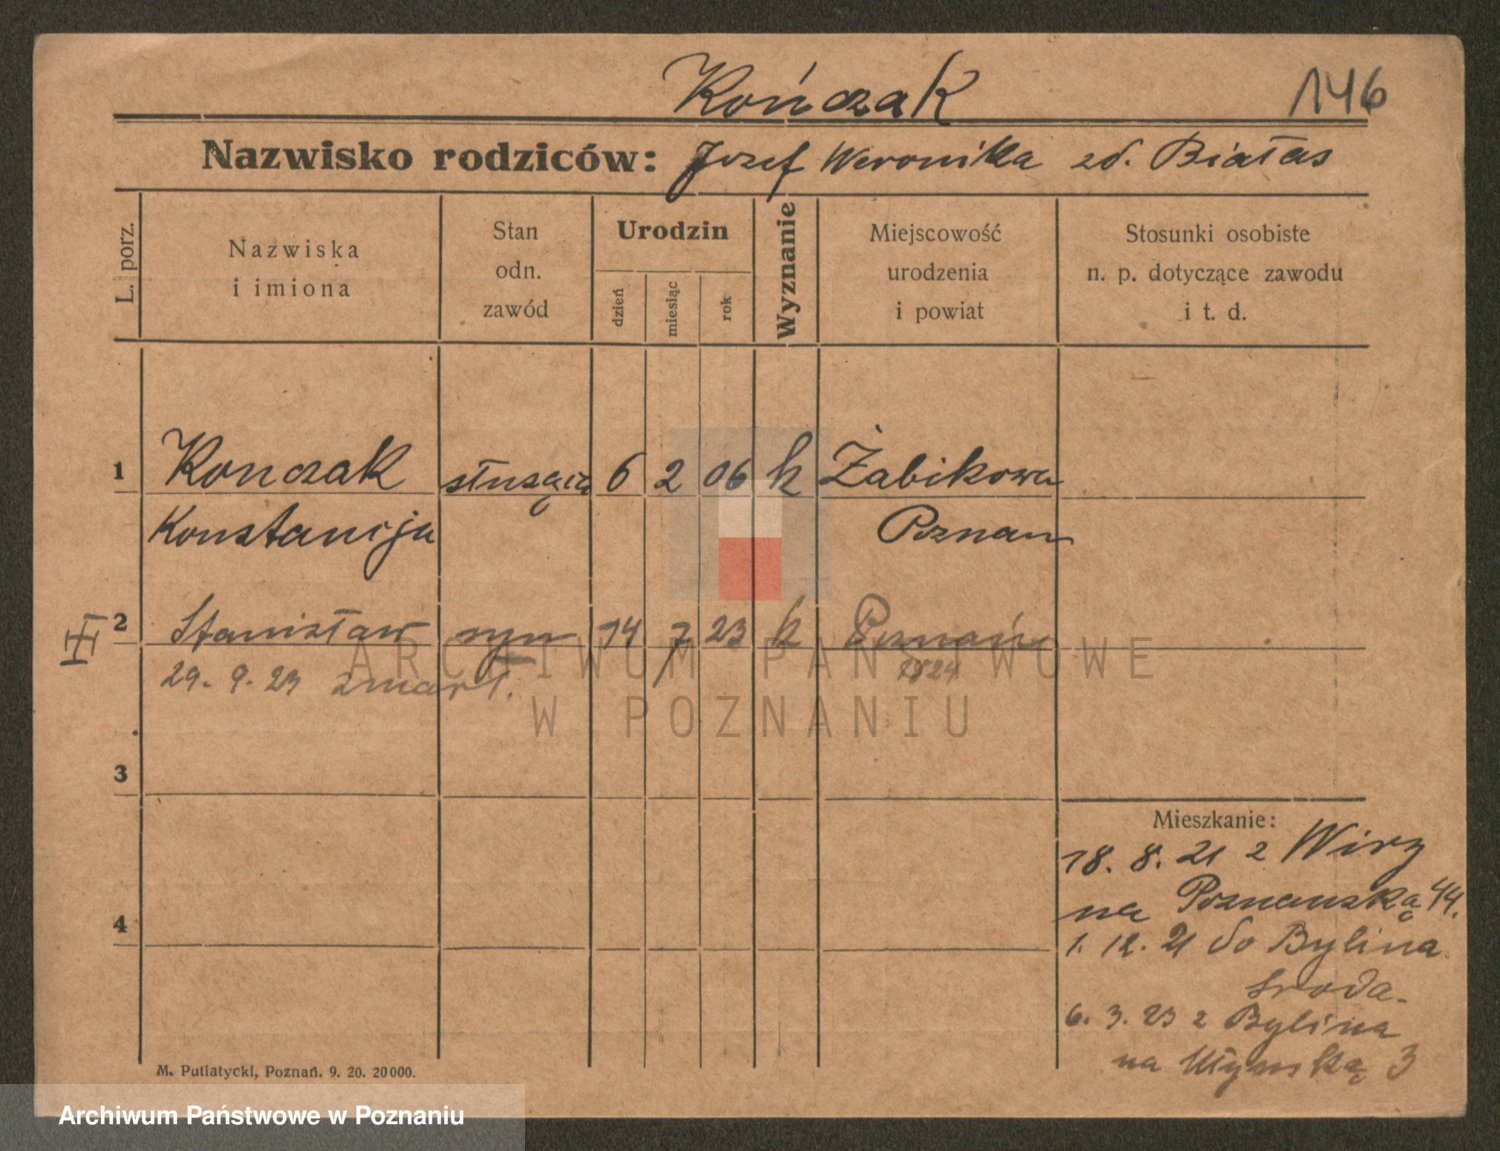 Kończak
146
Nazwisko rodziców: Jozef Weronika zd. Białas
L. porz.
Nazwiska
i imiona
Stan
odn.
zawód
Urodzin
dzień
miesiąc
rok
Wyznanie
Miejscowość
urodzenia
i powiat
Stosunki osobiste
n. p. dotyczące zawodu
i t. d.
1 Konczak służąca 6 2 06 k Żabikowa
Konstancja Poznan
2 Stanisław syn 14 7 23 k Poznań
29. 9. 23 zmarł.
ARCHIWUM PAŃSTWOWE
W POZNANIU
3
4
Mieszkanie:
18. 8. 21 z Wiry
na Poznanską 44.
1. 12. 21 do Bylina
Sroda.
6. 3. 23 z Bylina
na Młynską 3
M. Putiatycki, Poznań. 9. 20. 20000.
Archiwum Państwowe w Poznaniu